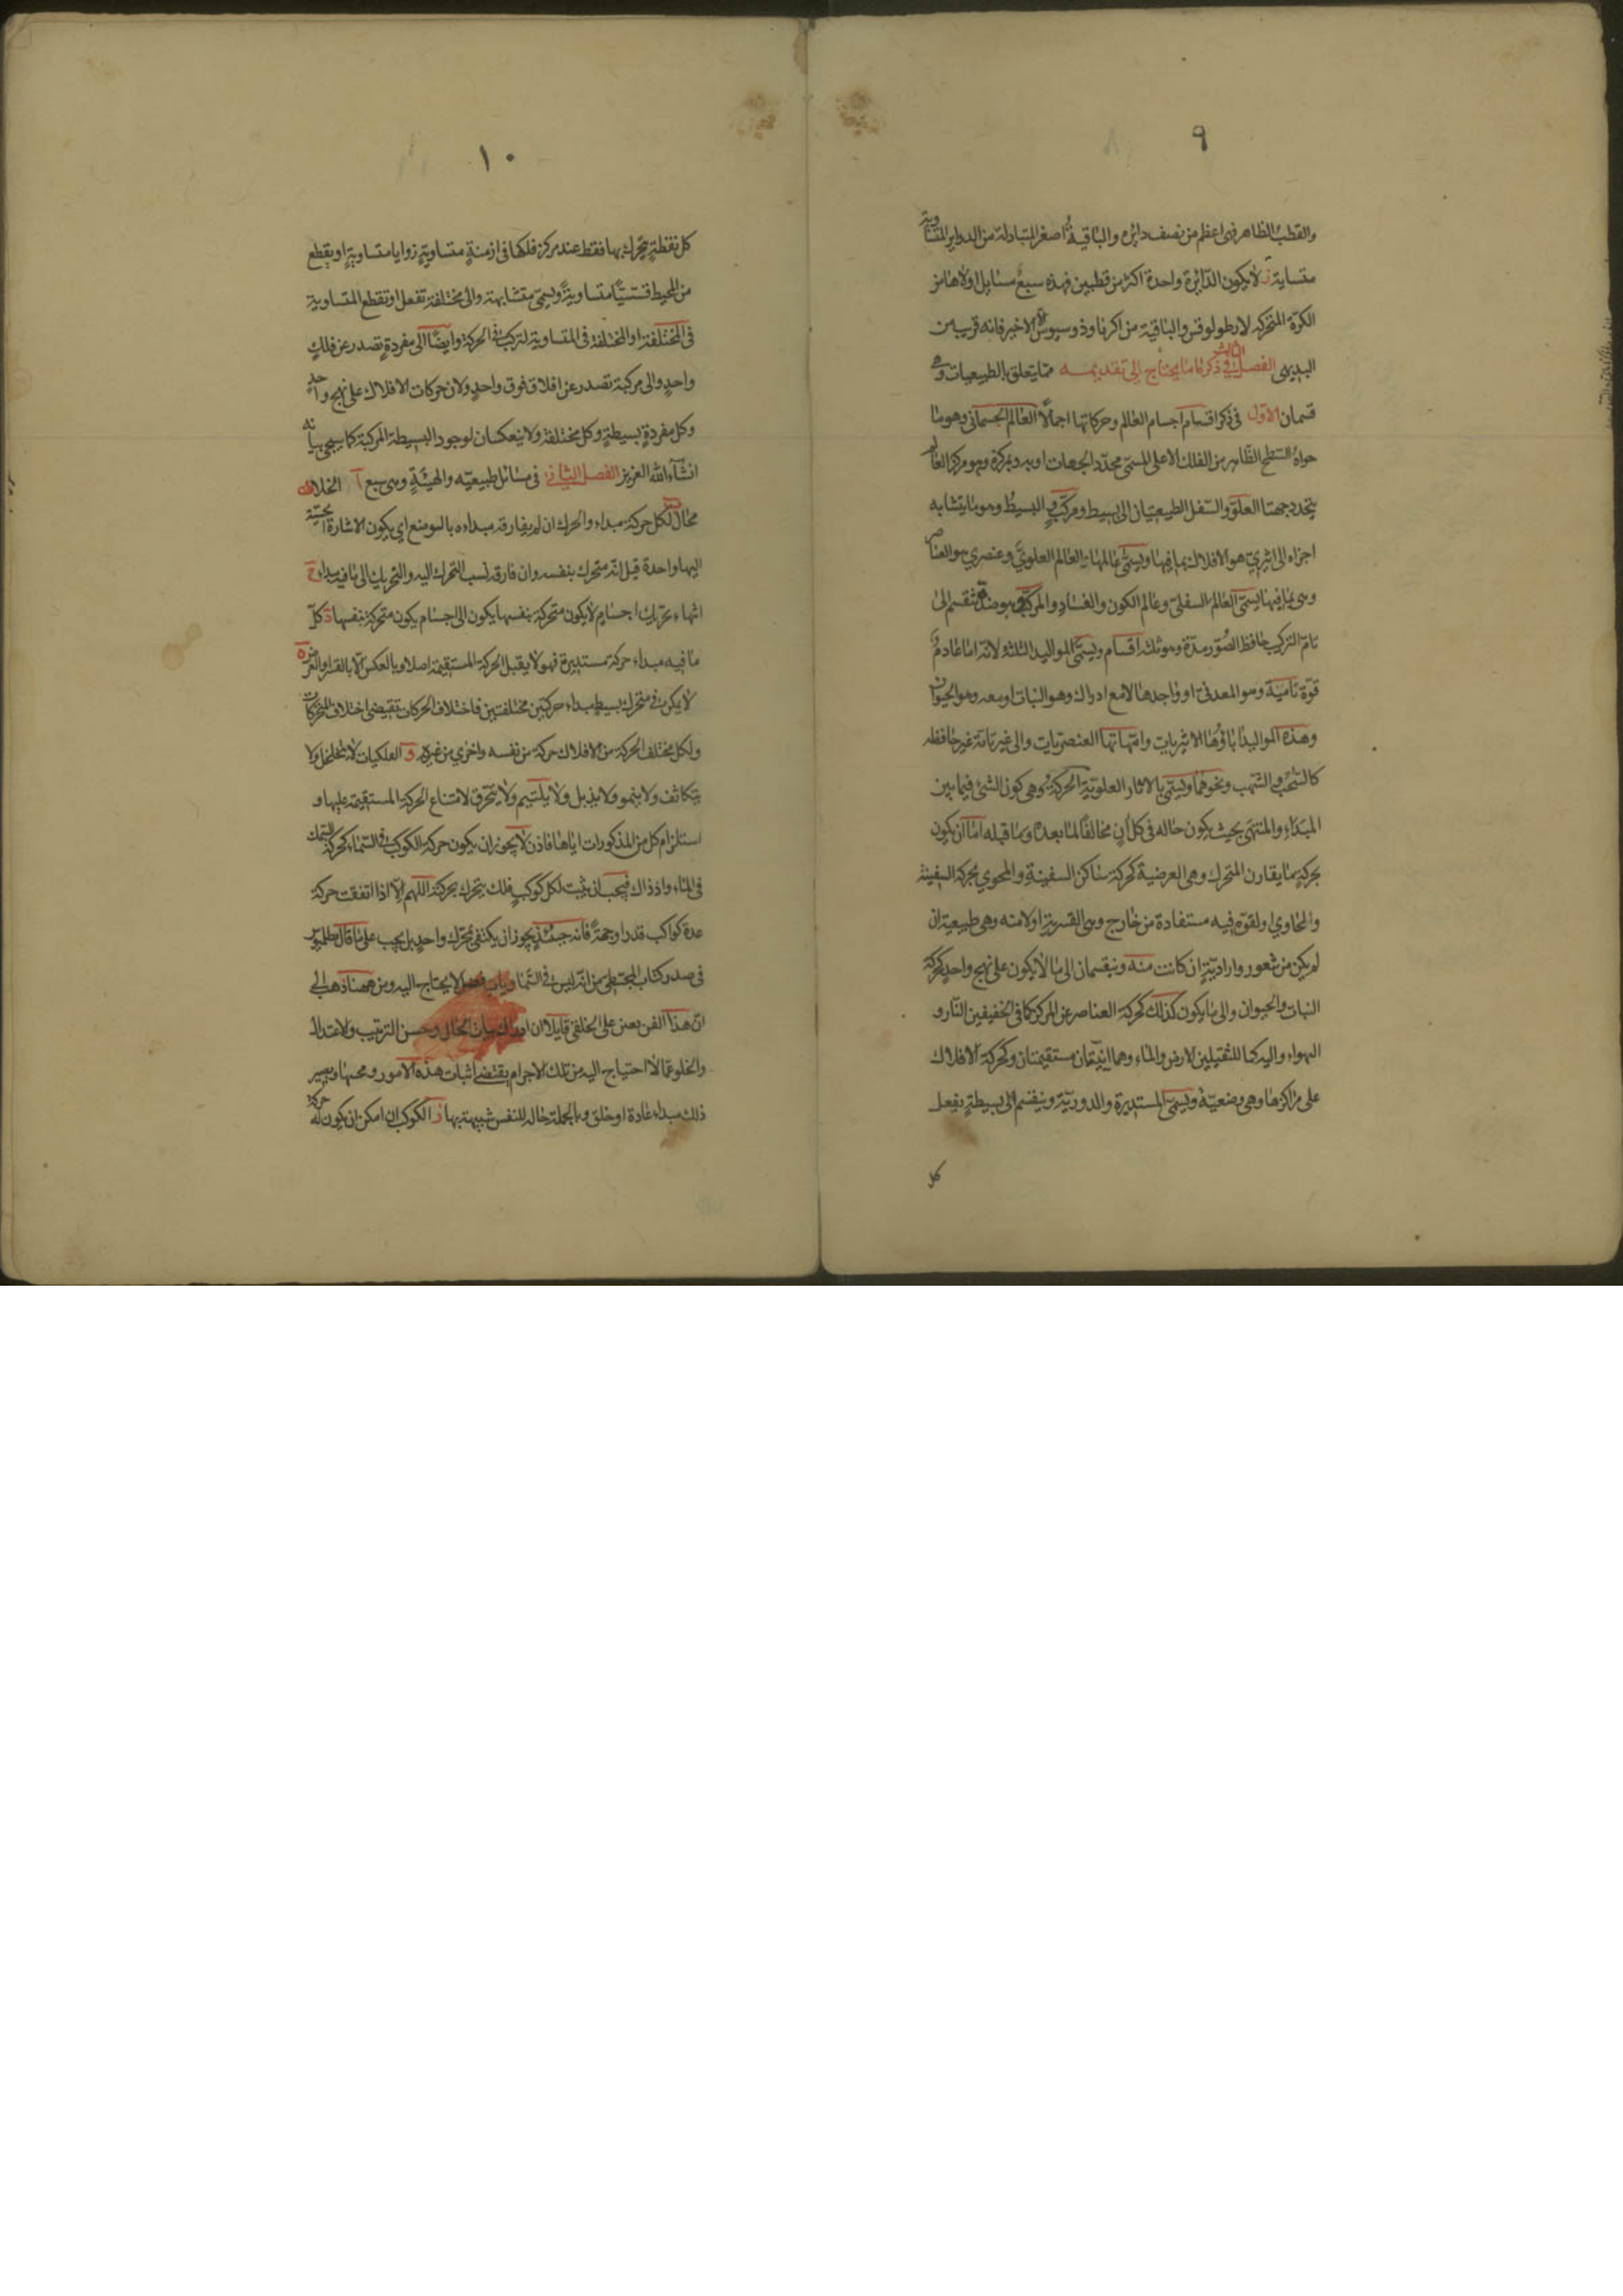 ٩
والقطب الظاهر فهى اعظم من نصف دائره والباقية اصغر المتبادلة من الدواير المتساوية
متساية ز لايكون الدائرة واحدة اكثر من قطبين فهذه سبع مسايل اولاها من
الكرة المتحركه لارطولوقس والباقية من اكر ثاوذوسيوس الا الاخير فانه قريب من
البديهى الفصل الثالث فى ذكر ما يحتاج الى تقديمه مما يتعلق بالطبيعيات وفيه
قسمان الاول فى ذكر اقسام اجسام العالم وحركاتها اجمالاً العالم الجسمانى وهو ما
حواه السطح الظاهر من الفلك الاعلى المسمى محدد الجهات اوبه وبمركزه وهو مركز العالم
يتحدد جهتا العلو والسفل الطبيعيتان الى بسيط ومركب والبسيط وهو ما يتشابه
اجزاه الى اثيرى هو الافلاك بما فيها ويسمى عالمها بالعالم العلوى وعنصرى هو العناصر
وهى بما فيها يسمى العالم السفلى وعالم الكون والفساد والمركب وهو ضده ينقسم الى
تام التركيب حافظ الصور مدة وهو ثلثه اقسام ويسمى المواليد الثلثه لانه اما عادم
قوة نامية وهو المعدنى او واجدها لامع ادراك وهو النبات او معه وهو الحيوان
وهذه المواليد اباؤها الاثيريات وامهاتها العنصريات والى غير تامة غير حافظه
كالسحب والشهب ونحوهما ويسمى بالاثار العلوية الحركة وهى كون الشئ فيما بين
المبداء والمنتهى بحيث يكون حاله فى كل ان مخالفًا لما بعده وما قبله اما ان يكون
بحركة ما يقارن المتحرك وهى العرضية كحركة ساكن السفينة والمحوي بحركة السفينة
والحاوي او لقوة فيه مستفادة من خارج وهى القسرية او لا منه وهى طبيعية ان
لم يكن من شعور وارادية ان كانت منه وينقسمان الى ما لايكون على نهج واحد كحركة
النبات والحيوان والى ما يكون كذلك كحركة العناصر عن المركز كما فى الخفيفين النار و
الهواء واليه كما للثقيلين الارض والماء وهما اينيتان مستقيمتان وكحركة الافلاك
على مراكزها وهى وضعية ويسمى المستديرة والدورية وينقسم الى بسيطة يفعل
كل
١٠
كل نقطة يتحرك بها فقط عند مركز فلكها فى ازمنة متساوية زوايا متساوية او يقطع
من المحيط قسيًّا متساوية ويسمى متشابهة والى مختلفة تفعل او تقطع المتساوية
فى المختلفة او المختلفة فى المتساوية لتركب فى الحركة وايضًا الى مفردة تصدر عن فلك
واحد والى مركبة تصدر عن افلاك فوق واحد ولان حركات الافلاك على نهج واحد
وكل مفردة بسيطة وكل مختلفة ولا ينعكسان لوجود البسيطة المركبة كما سيجى بيانه
انشاء الله العزيز الفصل الثانى فى مسائل طبيعيه والهيئة وهى سبع آ الخلاء
محال ب لكل حركة مبداء والمحرك ان لم يفارقه مبداءه بالوضع اي يكون الاشارة الحسية
اليها واحدة قيل انه متحرك بنفسه وان فارقه نسب التحرك اليه والتحريك الى ما فيه مبداه ج
انتهاء تحريك اجسام لايكون متحركة بنفسها يكون الى اجسام يكون متحركة بنفسها د كل
ما فيه مبداء حركة مستديرة فهو لا يقبل الحركة المستقيمة اصلا وبالعكس الا بالقسر او العرض ه
لايكن فى متحرك بسيط مبداء حركتين مختلفتين فاختلاف الحركات يقتضى اختلاف المتحركات
ولكل مختلف الحركة من الافلاك حركة من نفسه واخرى من غيره و الفلكيات لايتخلخل ولا
يتكاثف ولا ينمو ولا يذبل ولا يلتئم ولا يتخرق لامتناع الحركة المستقيمة عليها و
استلزام كل من المذكورات اياها فاذن لا يجوز ان يكون حركة الكوكب فى السماء كحركة السمك
فى الماء واذ ذاك فيجب ان يثبت لكل كوكب فلك يتحرك بحركته اللهم الا اذا اتفقت حركة
عدة كواكب قدرا وجهة فانه حينئذ يجوز ان يكتفى بمحرك واحد بل يجب على ما قال بطلميوس
فى صدر كتاب المجسطى من انه ليس فى السماويات فضل لا يحتاج اليه ومن ههنا ذهب الى
ان هذا الفن يعين على الخلقى قايلا ان ادراك ثبات الحال وحسن الترتيب والاعتدال
والخلو عما لا احتياج اليه من تلك الاجرام يقتضى اثبات هذه الامور ومحبتها ويصير
ذلك مبداء عادة او خلق وبالجملة حاله للنفس شبيهة بها ز الكوكب ان امكن ان يكون له حركة